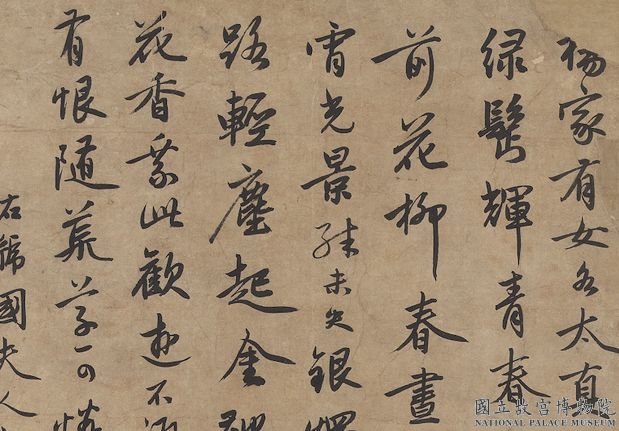 楊家有女名太真
緑鬢輝青春
前花柳春晝
宵光景殊未央銀
路輕塵起金
花香乘此歡遊不
有恨随荒草一可
右虢國夫人
國立故宮博物院
NATIONAL PALACE MUSEUM